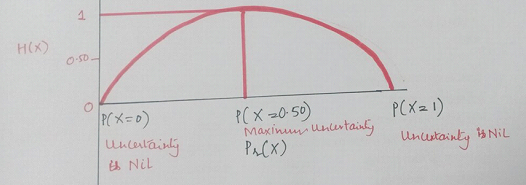 1
H(X)
0.50
0
P(X=0)
P(X=0.50)
P(X=1)
Uncertainty
is NiL
Maximum Uncertainty
Pr(X)
Uncertainty is NiL